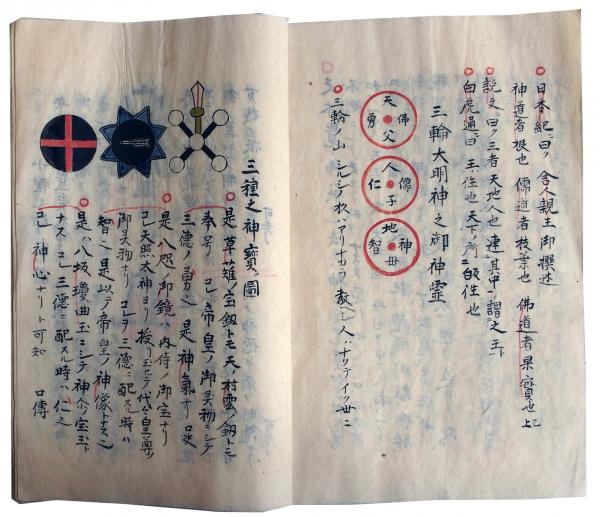 日本紀ニ曰ク 舎人親王御撰述
神道者根也 儒道者枝葉也 佛道者果實也 上記
説文ニ曰ク三者天地人也 連其中ヲ謂之王ト
白虎通ニ曰 王ハ往也 天下所ニ皈往也
三輪大明神之御神霊
天 佛 父 勇
人 儒 子 仁
地 神 毋 智
三輪ノ山 シルシノ杦ハアリナカラ 教ヘシ人ハナクテイク世ニ
三種之神寳ノ圖
是草薙ノ宝釼トモ天ノ村雲ノ釼トモ
奉号 帝皇ノ御霊物ニシテ
三徳ノ勇 是神氣ナリ 口决
是八咫ノ御鏡ハ内侍ノ御宝ナリ
天照太神ヨリ授リ玉ヒテ代々皇尊ノ
御霊物ナリ 三徳ニ配スル時ハ
智 是以テ帝皇ノ神像トナス
是ハ八坂瓊曲玉ニシテ神 宝玉ト
ナス 三徳ニ配スル時ハ仁
神心ナリト可知 口傳